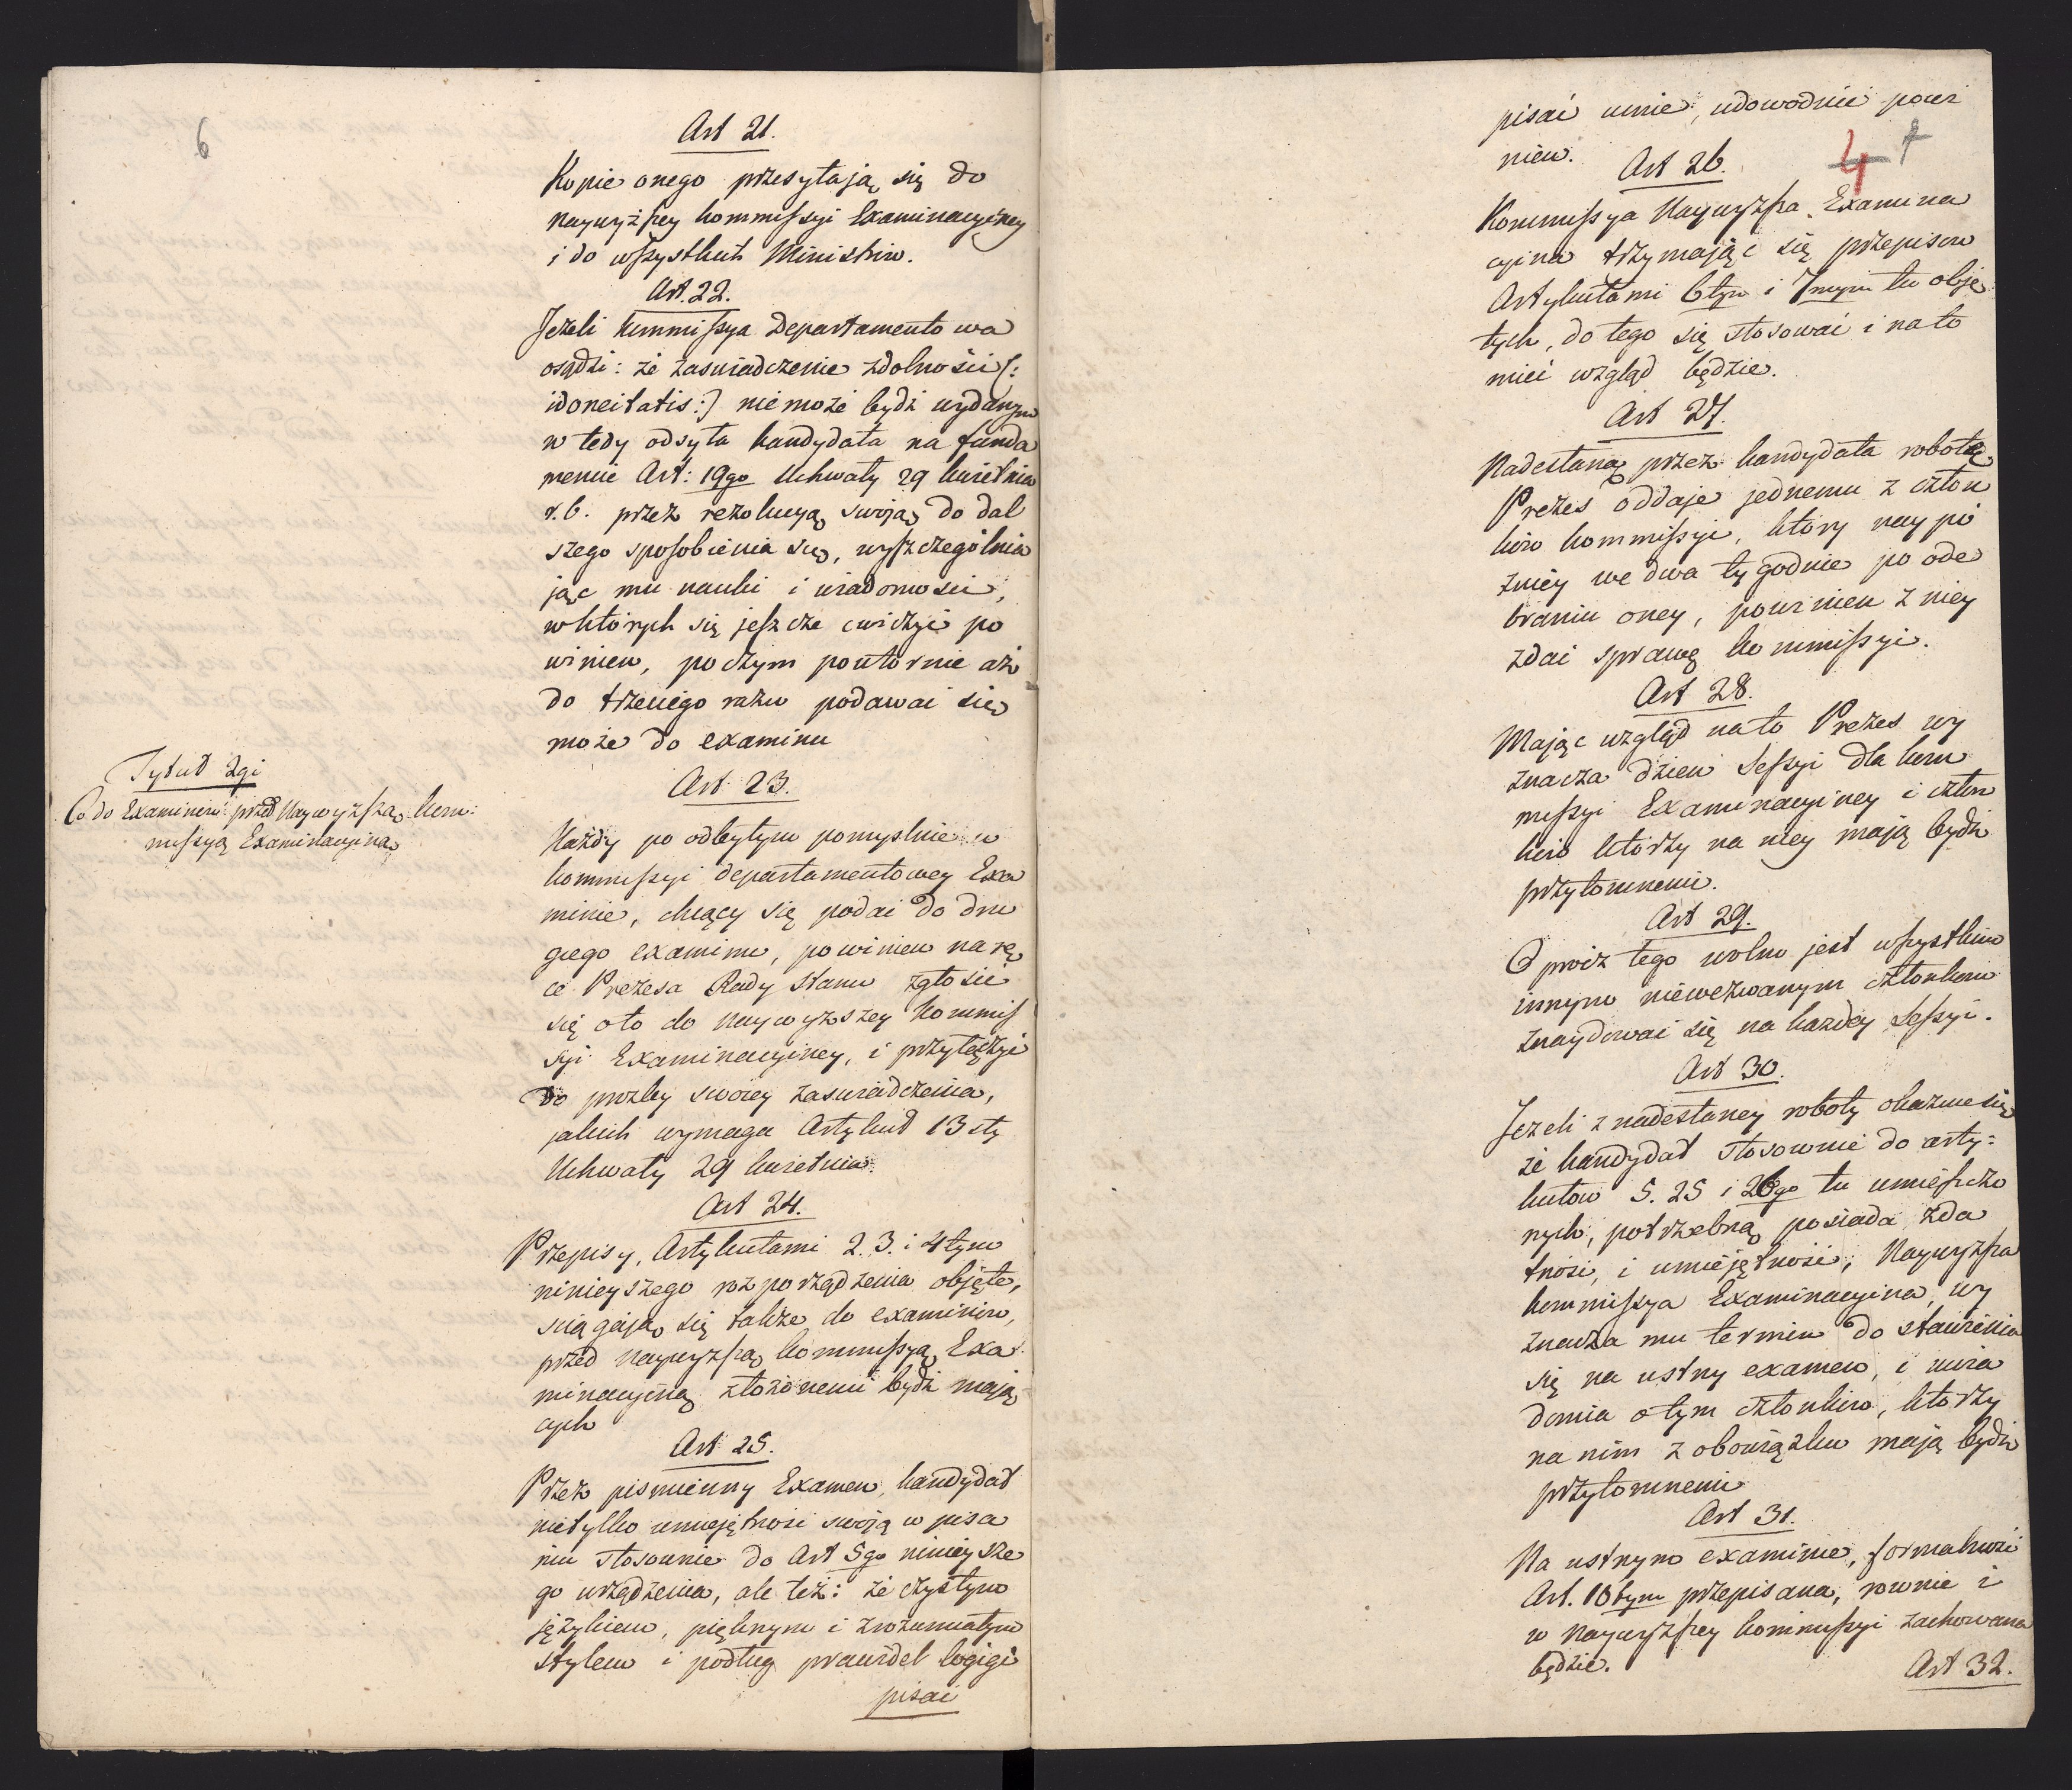 6
Art 21.
Kopie onego przesyłaią się do
Naywyższey Kommissyi Examinacyiney
i do wszystkich Ministrów.
Art. 22.
Jeżeli Kommissya Departamentowa
osądzi: że zaświadczenie zdolności (:
idoneitatis:) nie może bydź wydanym
w tedy odsyła kandydata na funda
mencie Art: 19go Uchwały 29 kwietnia
r. b. przez rezolucyą swoją do dal
szego sposobienia się, wyszczególnia
jąc mu nauki i wiadomości,
w których się jeszcze cwiczyć po
winien, poczym powtórnie aż
do trzeciego razu podawać się
może do examinu
Tytuł 2gi
Co do Examinów przed Naywyższą Kom:
missyą Examinacyiną
Art. 23.
Każdy po odbytym pomyslnie w
Kommissyi departamentowey Exa
minie, chcący się podać do dru
giego examinu, powinien na rę
ce Prezesa Rady Stanu zgłosić
się oto do Naywyższey Kommis
syi Examinacyiney, i przyłączyć
do prozby swoiey zaswiadczenia,
jakich wymaga Artykuł 13sty
Uchwały 29 kwietnia.
Art 24.
Przepisy, Artykułami 2. 3. i 4tym
ninieyszego rozporządzenia objęte,
sciągają się także do examinów,
przed Naywyższą Kommissyą Exa
minacyiną złożonemi bydź mają
cych
Art 25.
Przez pismienny Examen, kandydat
nietylko umiejętność swoją w pisa
niu stosownie do Art 5go ninieysze
go urządzenia, ale też: że czystym
językiem, pięknym i zrozumiałym
stylem i podług prawideł logiki
pisać
pisać umie, udowodnić powi
nien.
4 7
Art 26.
Kommissya Naywyższa Examina
cyina trzymając się przepisów
Artykułami 6tym i 7mym tu obję
tych, do tego się stosować i na to
mieć wzgląd będzie.
Art 27.
Nadesłaną przez kandydata robotę
Prezes oddaje jednemu z człon
ków Kommissyi, który naypó
zniéy we dwa tygodnie po ode
braniu oney, powinien z niey
zdać sprawę Kommissyi.
Art 28.
Mając wzgląd na to Prezes wy
znacza dzien Sessyi dla Kom
missyi Examinacyiney i człon
ków którzy na niey mają bydź
przytomnemi.
Art 29.
Oprócz tego wolno jest wszystkim
innym niewezwanym członkom
znaydować się na każdey Sessyi.
Art 30.
Jeżeli z nadesłaney roboty okaże się
że kandydat stosownie do arty:
kułów 5. 25 i 26go tu umieszczo
nych, potrzebną posiada zda
tność, i umiejętność, Naywyższa
Kommissya Examinacyina, wy
znacza mu termin do stawienia
się na ustny examen, i uwia
domia o tym członków, którzy
na nim z obowiązku mają bydź
przytomnemi
Art 31.
Na ustnym examinie, formalność
Art. 18tym przepisana, rownie i
w Naywyższey Kommissyi zachowana
będzie.
Art 32.